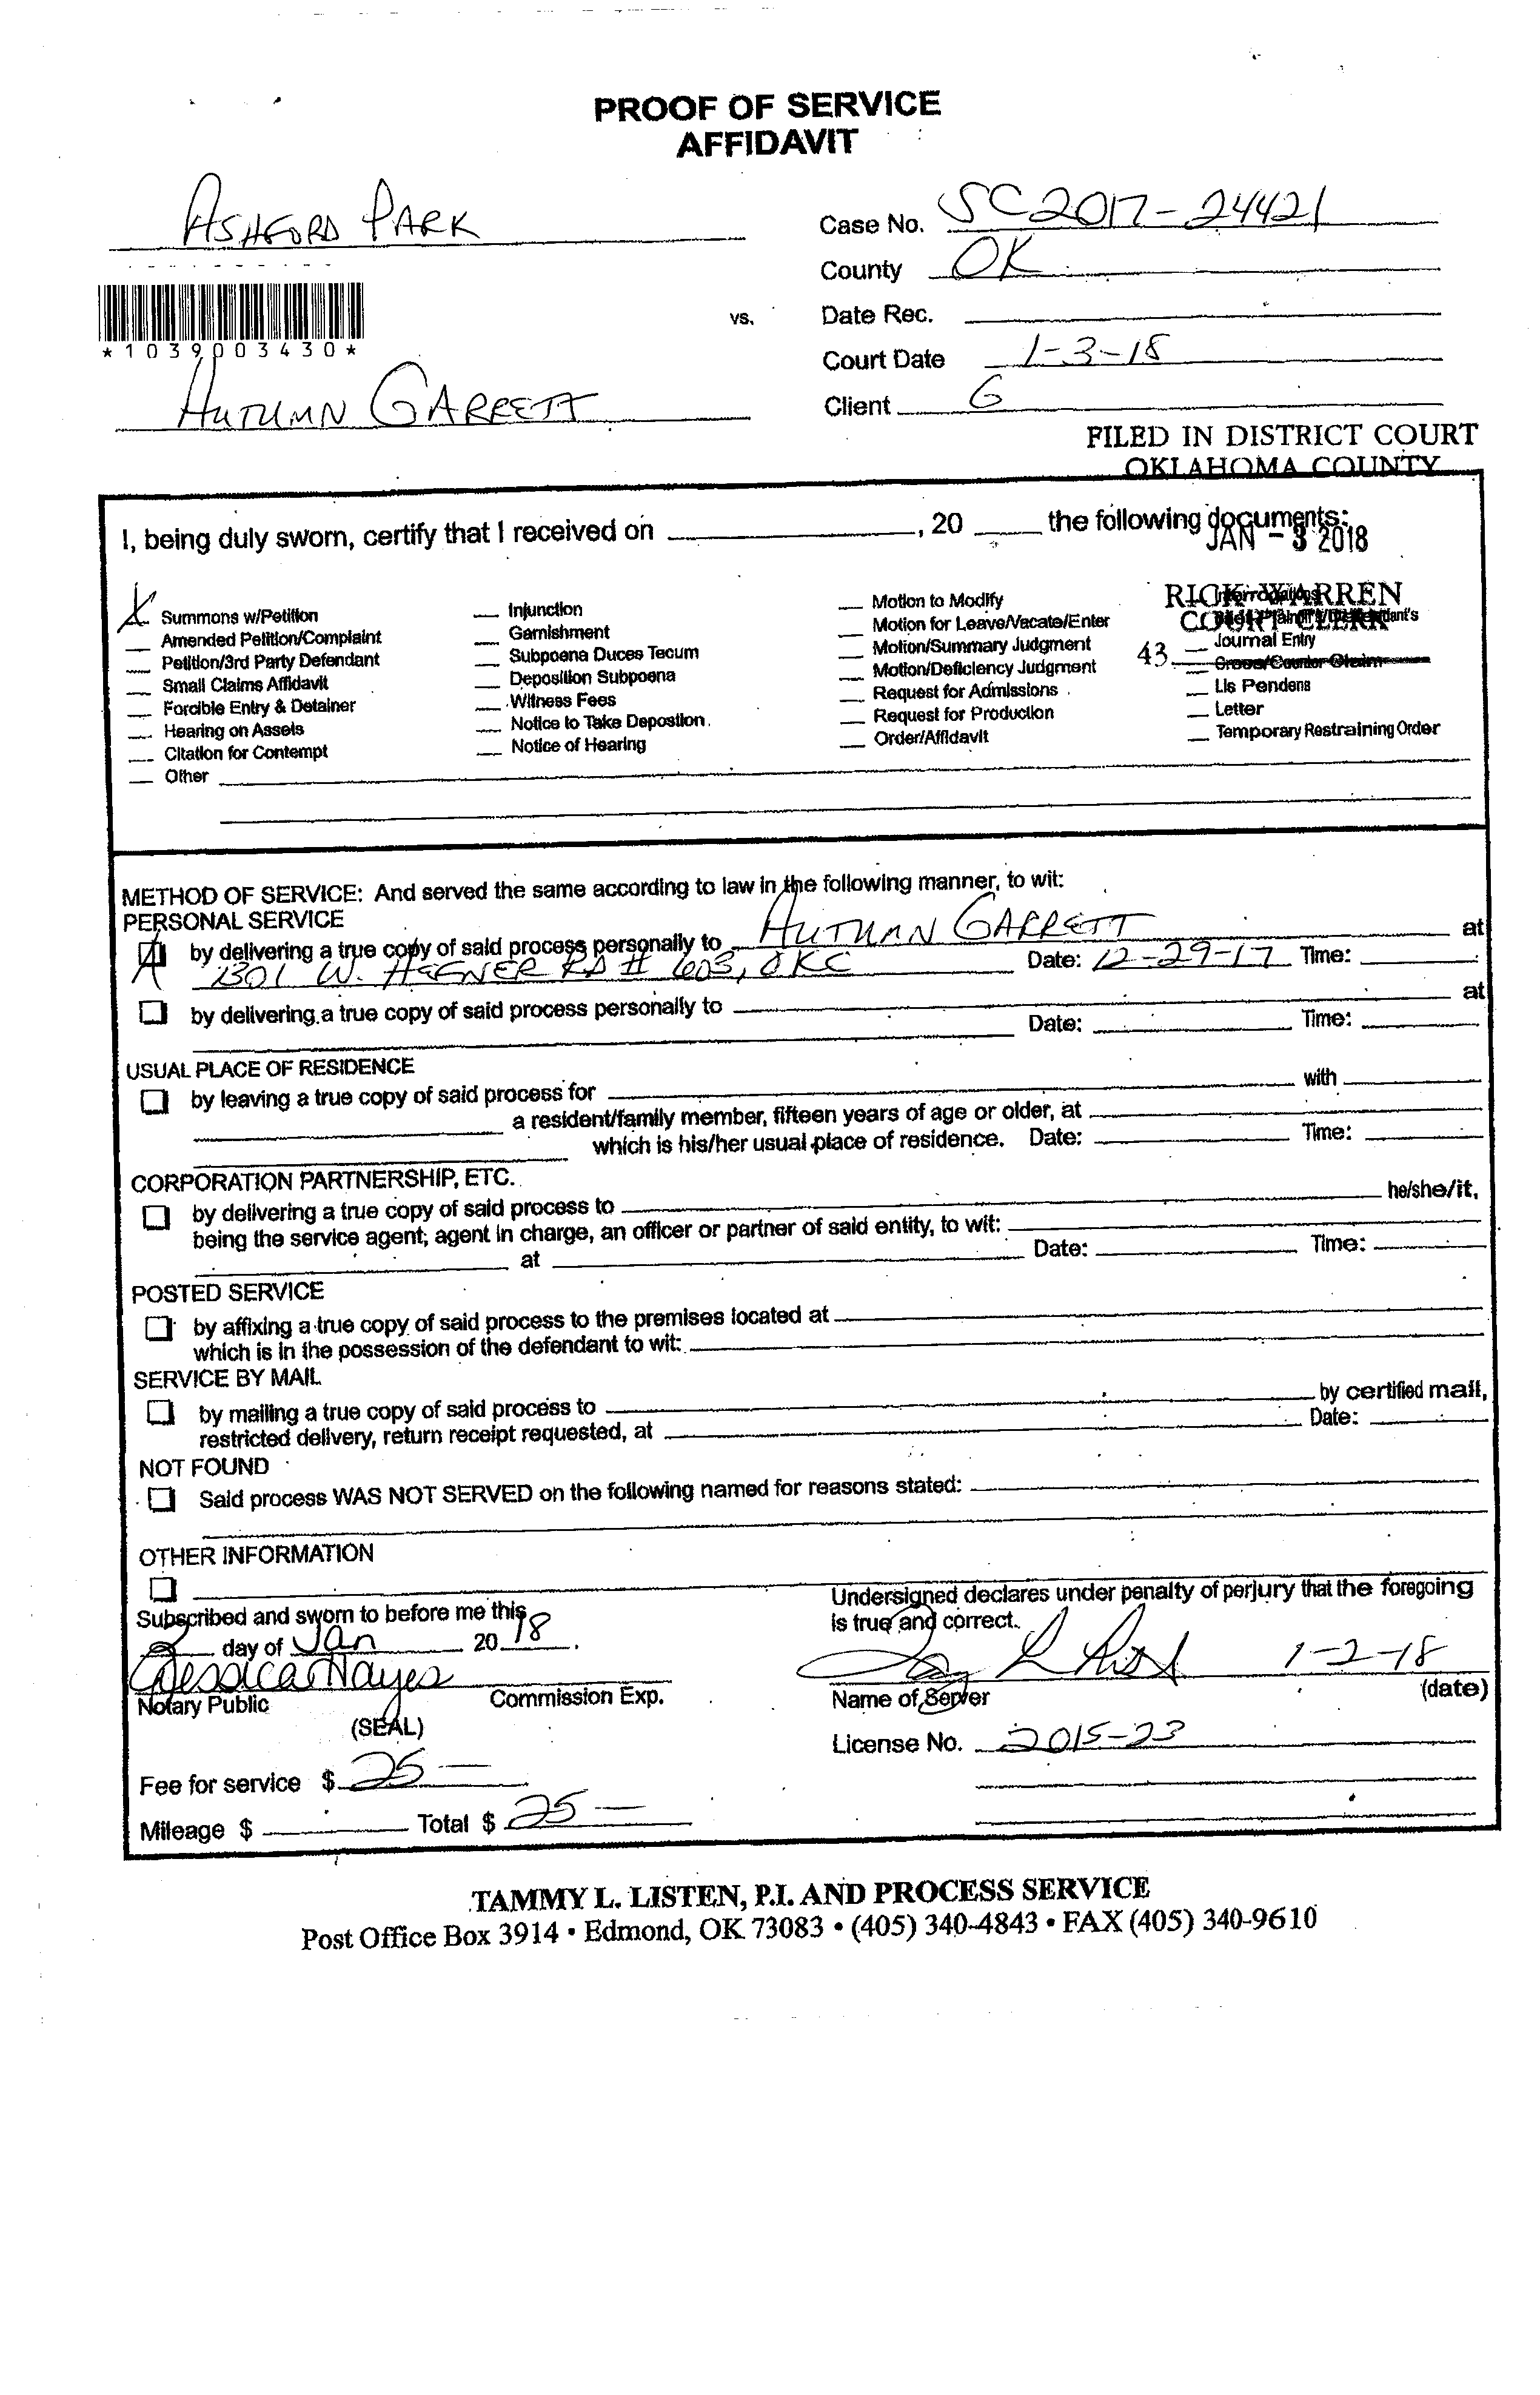 PROOF OF SERVICE
AFFIDAVIT
ASHFORD PARK
Case No. SC2017-24421
County OK
*1039003430*
vs.
Date Rec.
Court Date 1-3-18
AUTUMN GARRETT
Client G
FILED IN DISTRICT COURT
OKLAHOMA COUNTY
I, being duly sworn, certify that I received on ________, 20 ____ the following documents:
JAN - 3 2018
RICK WARREN
COURT CLERK
43
X Summons w/Petition
Amended Petition/Complaint
Petition/3rd Party Defendant
Small Claims Affidavit
Forcible Entry & Detainer
Hearing on Assets
Citation for Contempt
Other
Injunction
Garnishment
Subpoena Duces Tecum
Deposition Subpoena
Witness Fees
Notice to Take Depostion.
Notice of Hearing
Motion to Modify
Motion for Leave/Vacate/Enter
Motion/Summary Judgment
Motion/Deficiency Judgment
Request for Admissions
Request for Production
Order/Affidavit
Interrogatories
Journal Entry
Cross/Counter Claim
Lis Pendens
Letter
Temporary Restraining Order
METHOD OF SERVICE: And served the same according to law in the following manner, to wit:
PERSONAL SERVICE
by delivering a true copy of said process personally to AUTUMN GARRETT at
1301 W. HEFNER RD # 603, OKC Date: 12-29-17 Time:
by delivering a true copy of said process personally to at
Date: Time:
USUAL PLACE OF RESIDENCE
by leaving a true copy of said process for with
a resident/family member, fifteen years of age or older, at
which is his/her usual place of residence. Date: Time:
CORPORATION PARTNERSHIP, ETC.
by delivering a true copy of said process to he/she/it,
being the service agent, agent in charge, an officer or partner of said entity, to wit:
at Date: Time:
POSTED SERVICE
by affixing a true copy of said process to the premises located at
which is in the possession of the defendant to wit:
SERVICE BY MAIL
by mailing a true copy of said process to by certified mail,
restricted delivery, return receipt requested, at Date:
NOT FOUND
Said process WAS NOT SERVED on the following named for reasons stated:
OTHER INFORMATION
Subscribed and sworn to before me this
2 day of Jan 20 18.
Jessica Hayes
Notary Public Commission Exp.
(SEAL)
Fee for service $ 25 —
Mileage $ Total $ 25 —
Undersigned declares under penalty of perjury that the foregoing
is true and correct.
1-2-18
Name of Server (date)
License No. 2015-23
TAMMY L. LISTEN, P.I. AND PROCESS SERVICE
Post Office Box 3914 • Edmond, OK 73083 • (405) 340-4843 • FAX (405) 340-9610